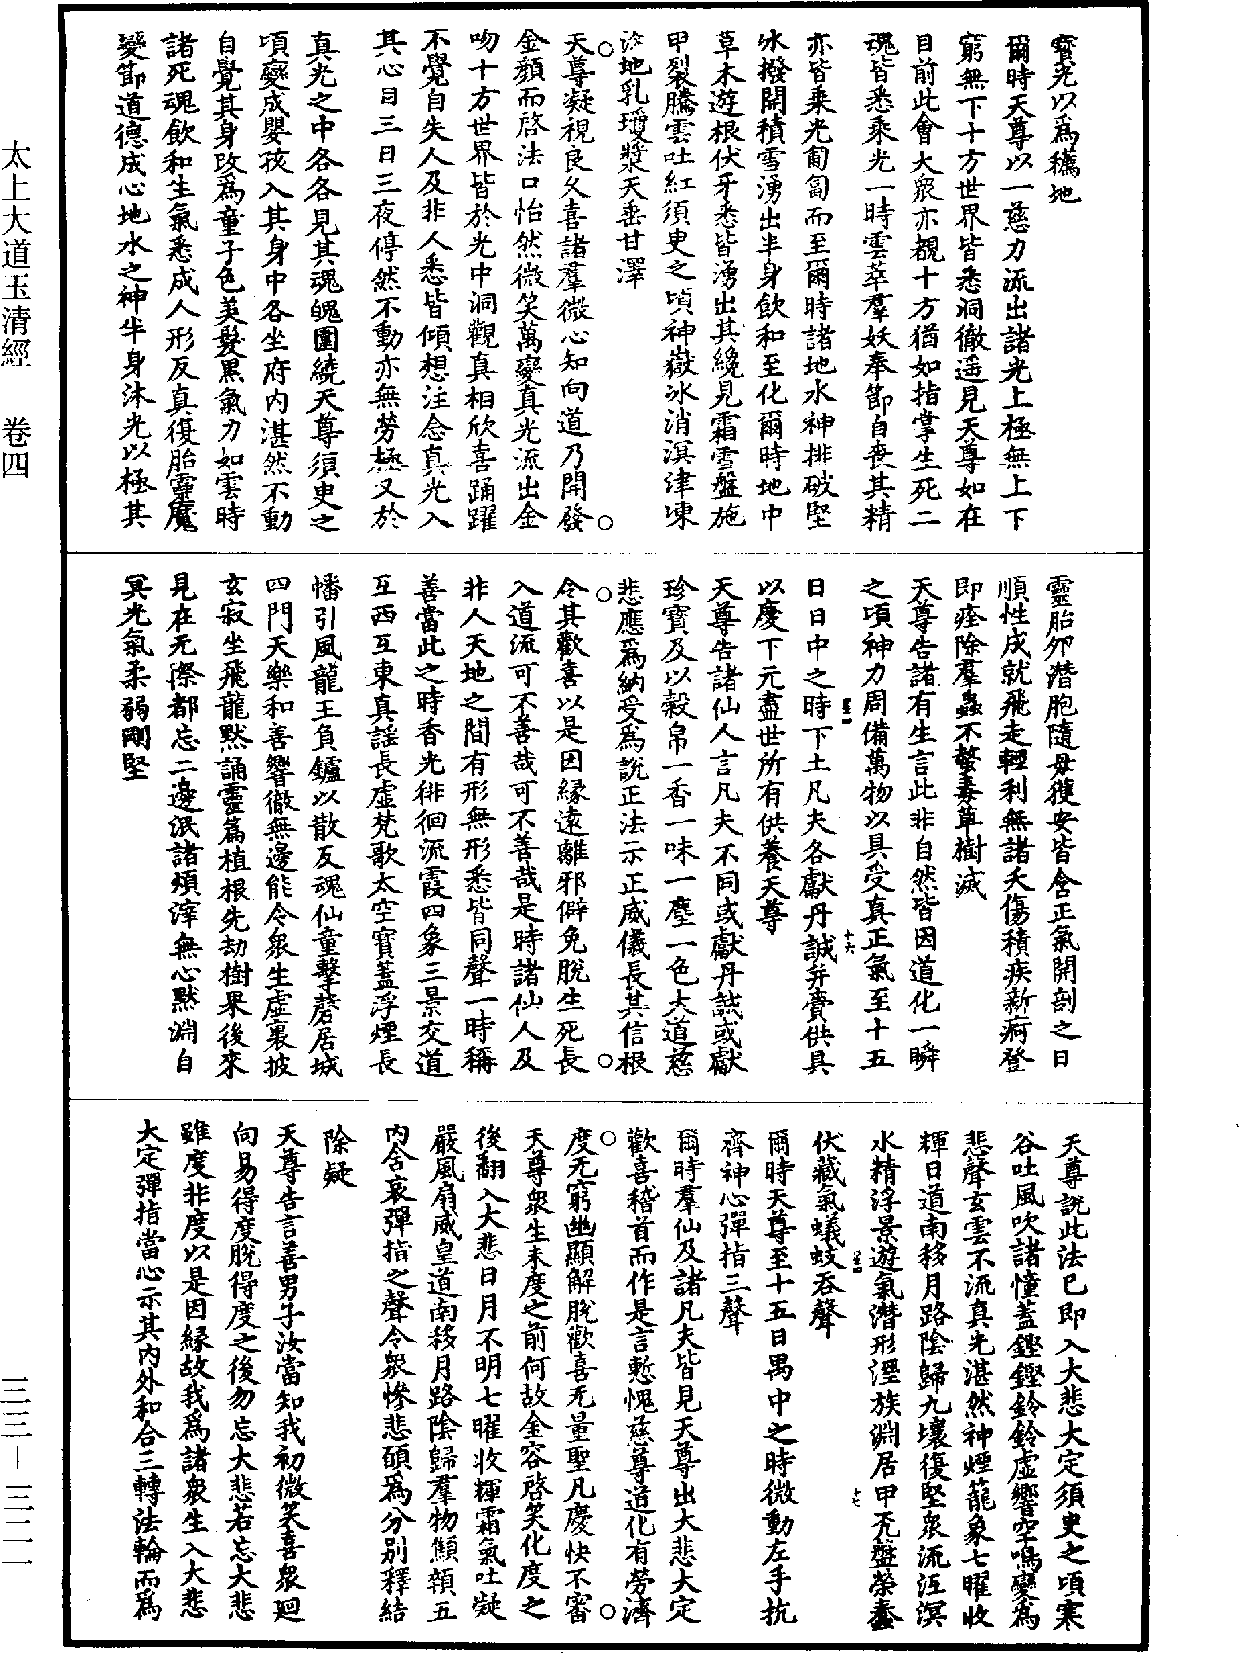 寶光以爲穢地
爾時天尊以一慈力流出諸光上極無上下
窮無下十方世界皆悉洞徹遥見天尊如在
目前此會大衆亦覩十方猶如指掌生死二
魂皆悉乘光一時雲萃羣妖奉節自喪其精
亦皆乘光匍匐而至爾時諸地水神排破堅
冰撥開積雪湧出半身飲和至化爾時地中
草木遊根伏牙悉皆湧出其纔見霜雪盤施
甲裂騰雲吐紅須臾之頃神嶽冰消溟津凍
泮地乳瓊漿天垂甘澤
天尊凝視良久喜諸羣微心知向道乃開發
金顏而啓法口怡然微笑萬變真光流出金
吻十方世界皆於光中洞觀真相欣喜踊躍
不覺自失人及非人悉皆傾想注念真光入
其心目三日三夜停然不動亦無勞極又於
真光之中各各見其魂魄圍繞天尊須臾之
頃變成嬰孩入其身中各坐府内湛然不動
自覺其身改爲童子色美髮黑氣力如雲時
諸死魂飲和生氣悉成人形反真復胎靈魔
變節道德成心地水之神半身沐光以極其
靈胎夘潛胞隨母獲安皆含正氣開剖之日
順性成就飛走輕利無諸夭傷積疾新痾登
即痊除羣蟲不螫毒草樹滅
天尊告諸有生言此非自然皆因道化一瞬
之頃神力周備萬物以具受真正氣至十五
日日中之時下土凡夫各獻丹誠并賷供具
以慶下元盡世所有供養天尊
天尊告諸仙人言凡夫不同或獻丹誠或獻
珍寶及以穀帛一香一味一塵一色大道慈
悲應爲納受爲說正法示正威儀長其信根
令其歡喜以是因緣遠離邪僻免脫生死長
入道流可不善哉可不善哉是時諸仙人及
非人天地之間有形無形悉皆同聲一時稱
善當此之時香光徘徊流霞四象三景交道
互西互東真謡長虛梵歌太空寶蓋浮煙長
幡引風龍王負鑪以散反魂仙童擊磬居城
四門天樂和善響徹無邊能令衆生虛裏披
玄寂坐飛龍默誦靈篇植根先劫樹果後來
見在无際都忘二邊泯諸煩滓無心默淵自
冥光氣柔弱剛堅
天尊說此法已即入大悲大定須臾之頃寒
谷吐風吹諸幢蓋鏗鏗鈴鈴虛響空鳴變爲
悲聲玄雲不流真光湛然神煙蘢象七曜收
輝日道南移月路陰歸九壤復堅衆流沍溟
水精浮景遊氣潛形溼族淵居甲禿盤縈蠢
伏藏氣蟻蚑吞聲
爾時天尊至十五日禺中之時微動左手抗
齊神心彈指三聲
爾時羣仙及諸凡夫皆見天尊出大悲大定
歡喜稽首而作是言慙愧慈尊道化有勞濟
度无窮幽顯解脫歡喜无量聖凡慶快不審
天尊衆生未度之前何故金容啓笑化度之
後翻入大悲日月不明七曜收輝霜氣吐凝
嚴風扇威皇道南移月路陰歸羣物顦顇五
内含哀彈指之聲令衆慘悲頭爲分别釋結
除疑
天尊告言善男子汝當知我初微笑喜衆迴
向易得度脫得度之後勿忘大悲若忘大悲
雖度非度以是因緣故我爲諸衆生入大悲
大定彈指當心示其内外和合三轉法輪而爲
太上大道玉清經　卷四
三三－三二一
十六
十七